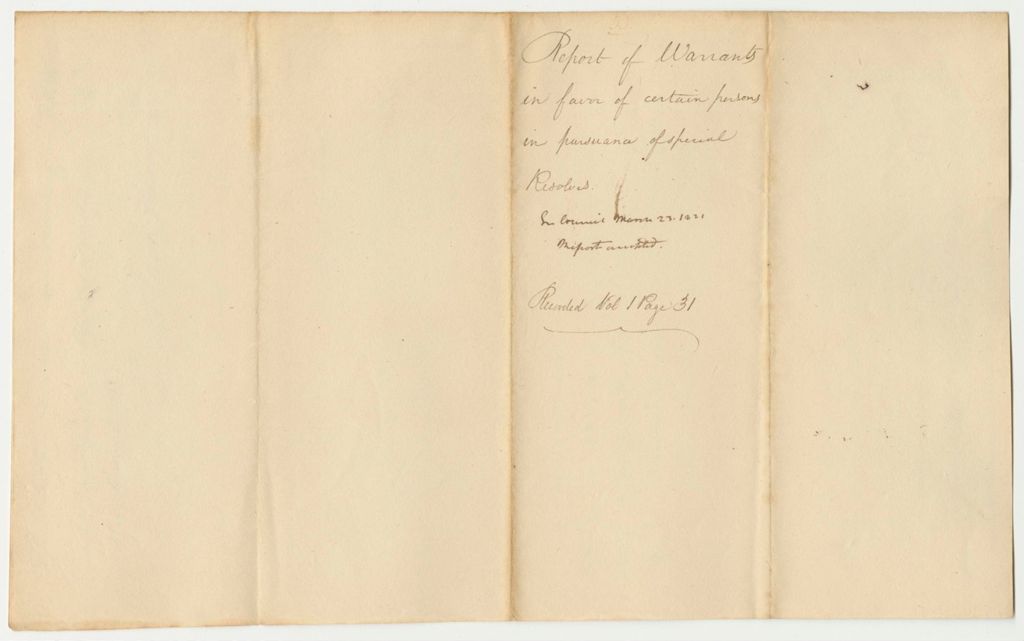 Report of Warrants
in favor of certain persons
in pursuance of special
Resolves.
In Council March 23. 1821
Report accepted.
Recorded Vol 1 Page 31